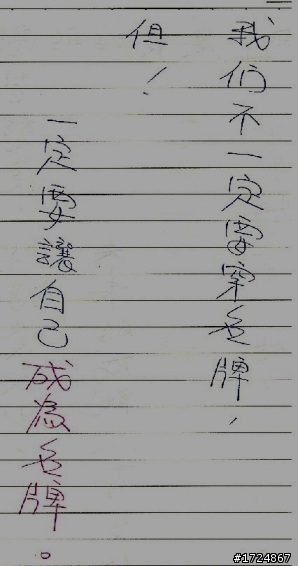 我們不一定要穿名牌，
但！
一定要讓自己成為名牌。
#1724867